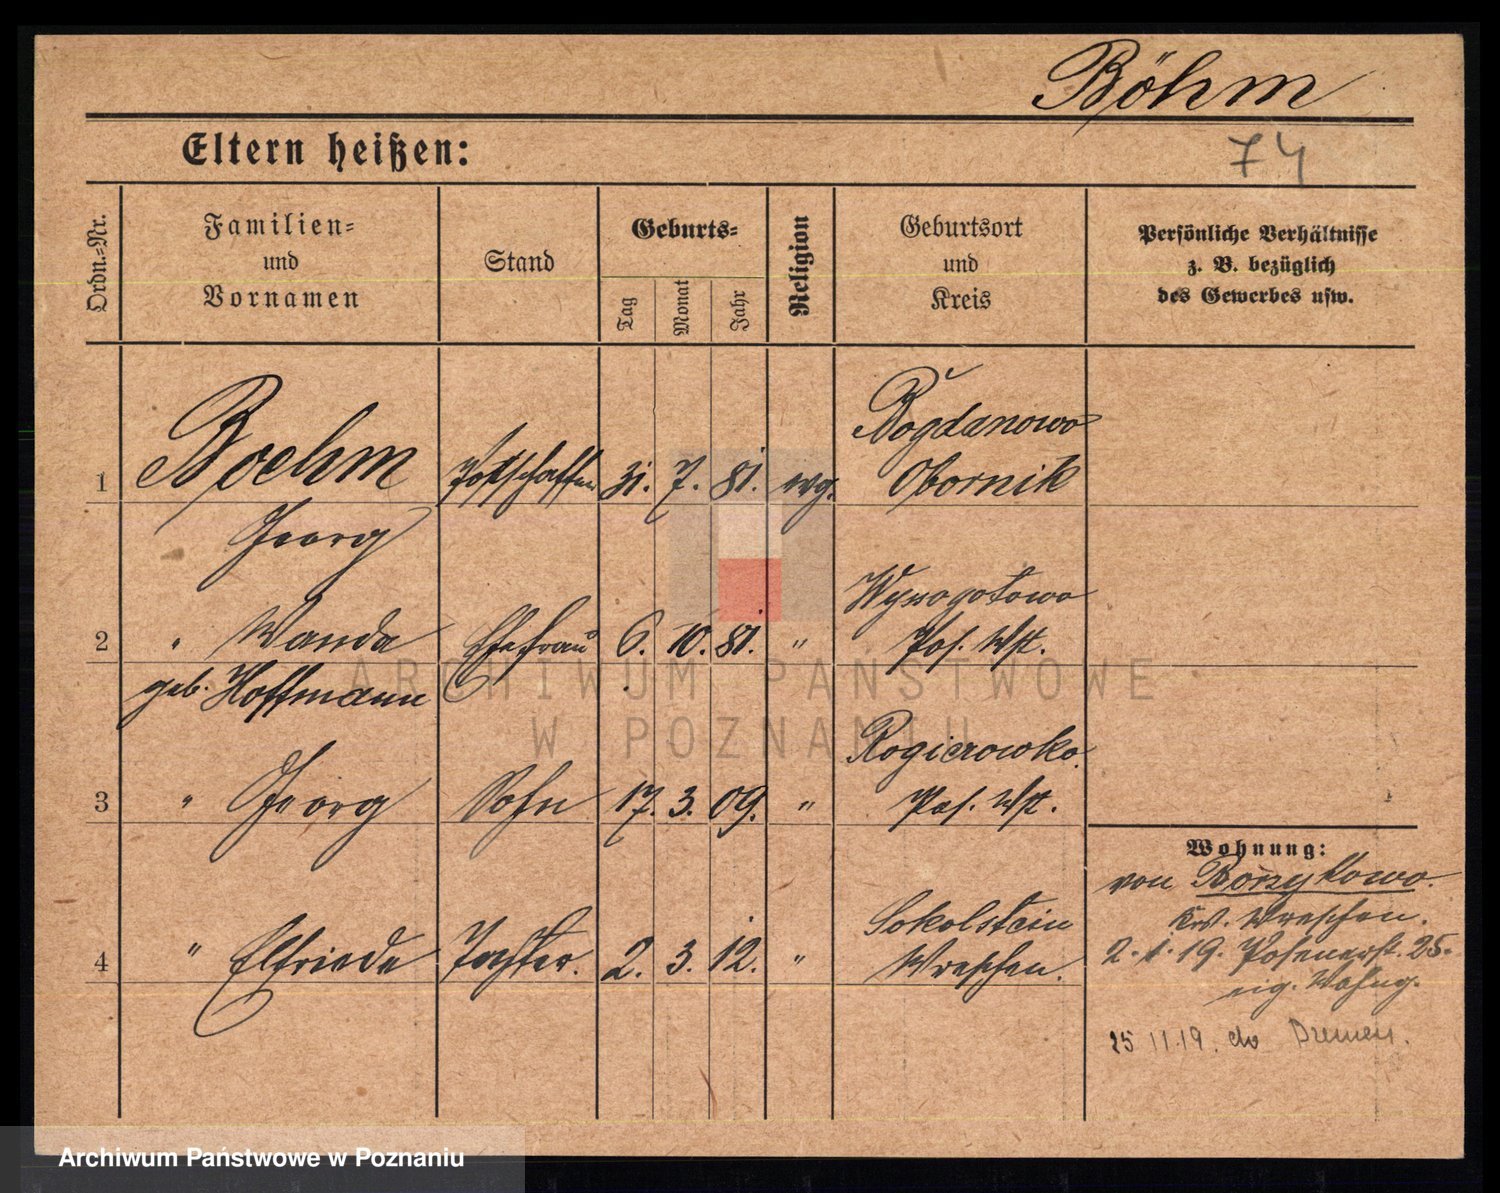 Böhm
Eltern heißen:
74
Ordn.-Nr.
Familien-
und
Vornamen
Stand
Geburts-
Tag
Monat
Jahr
Religion
Geburtsort
und
Kreis
Persönliche Verhältnisse
z. B. bezüglich
des Gewerbes usw.
1 Boehm 31. 7. 81. evg. Bogdanowo
Obornik
Georg
2 " Wanda Ehefrau 6. 10. 81. " Wysogotowo
Pos. Wst.
geb. Hoffmann
3 " Georg Sohn 17. 3. 09. " Rogierowko.
Pos. Wst.
4 " Elfriede Tochter. 2. 3. 12. " Sokolstein
Wreschen.
Wohnung:
von Borzykowo.
Krs. Wreschen.
2. 1. 19. Posenerst. 25.
eig. Wohng.
25 11.19. Bremen.
ARCHIWUM PAŃSTWOWE
W POZNANIU
Archiwum Państwowe w Poznaniu